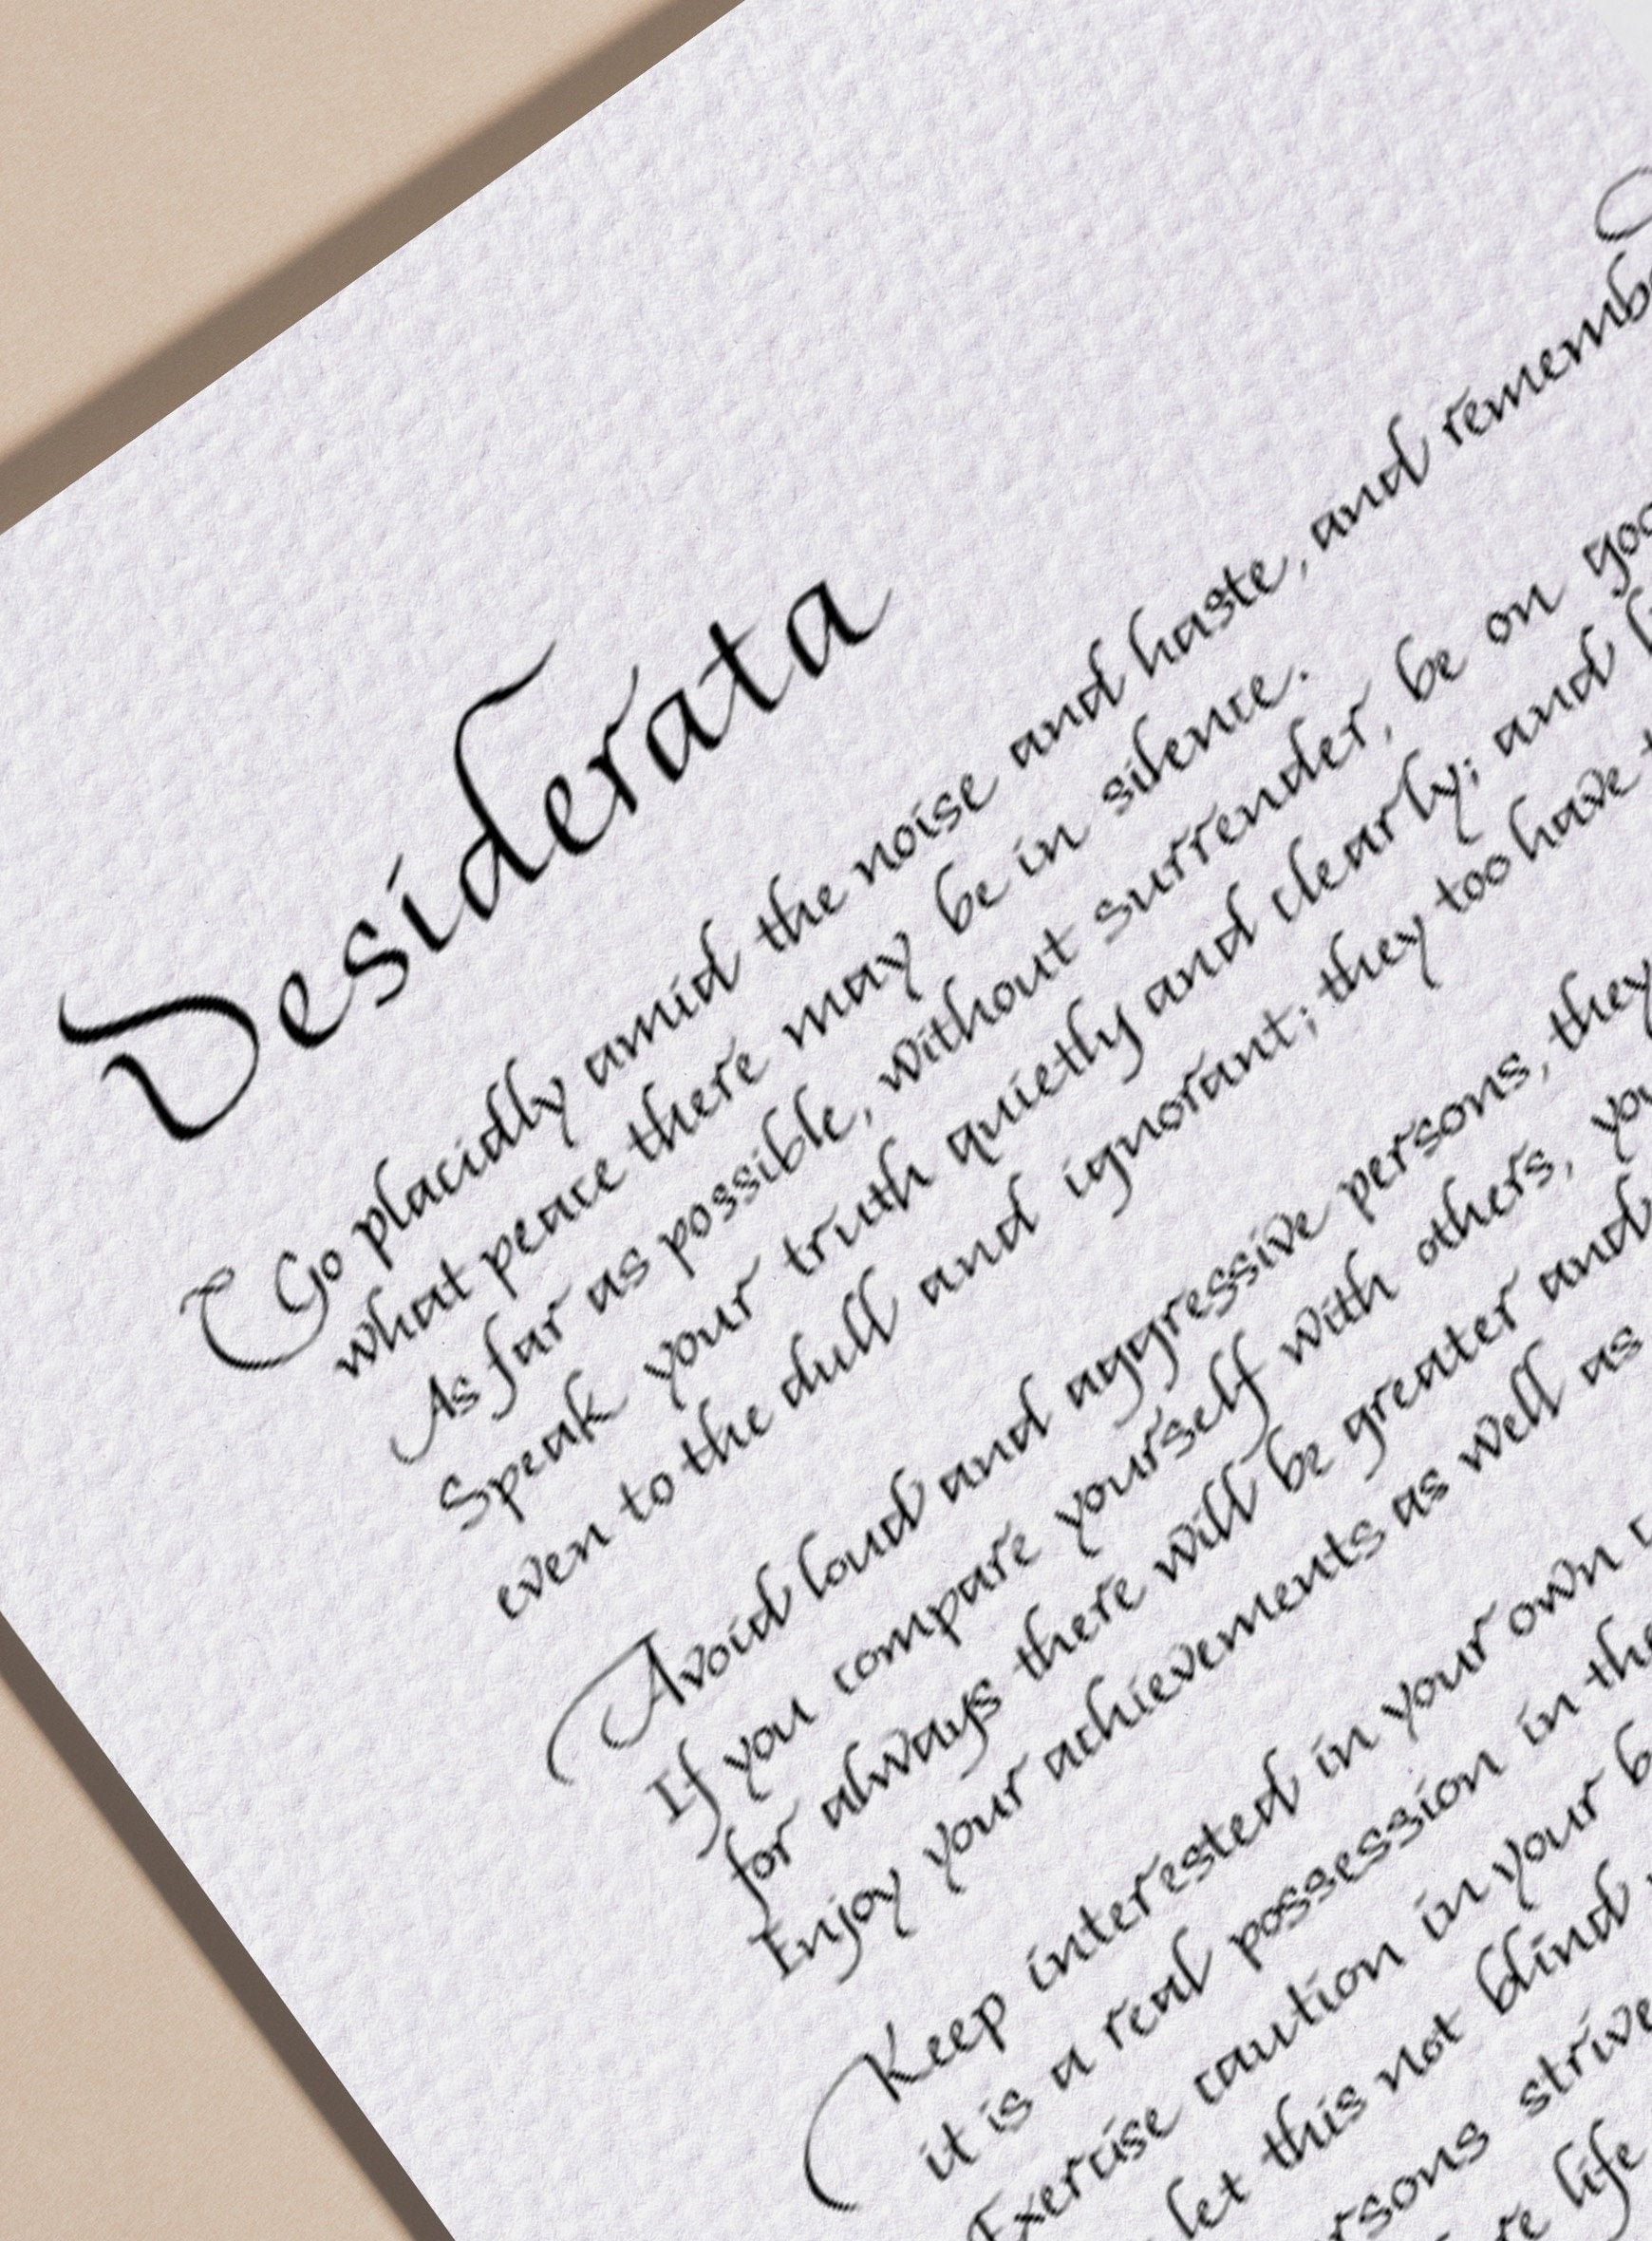 Desiderata
Go placidly amid the noise and haste, and rememb
what peace there may be in silence.
As far as possible, without surrender, be on goo
Speak your truth quietly and clearly; and l
even to the dull and ignorant; they too have t
Avoid loud and aggressive persons, they
If you compare yourself with others, you
for always there will be greater and
Enjoy your achievements as well as
Keep interested in your own
it is a real possession in the
Exercise caution in your b
let this not blind
rsons strive
re life